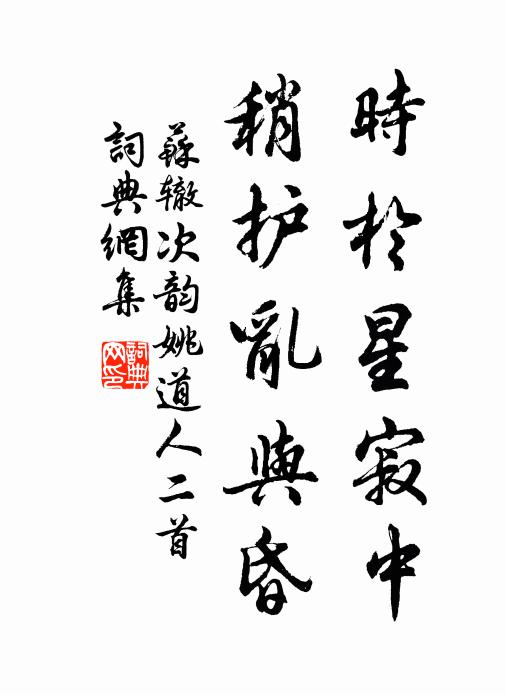 時於星寂中
稍护亂與昏
蘇辙次韵姚道人二首
詞典網集
詞典网印